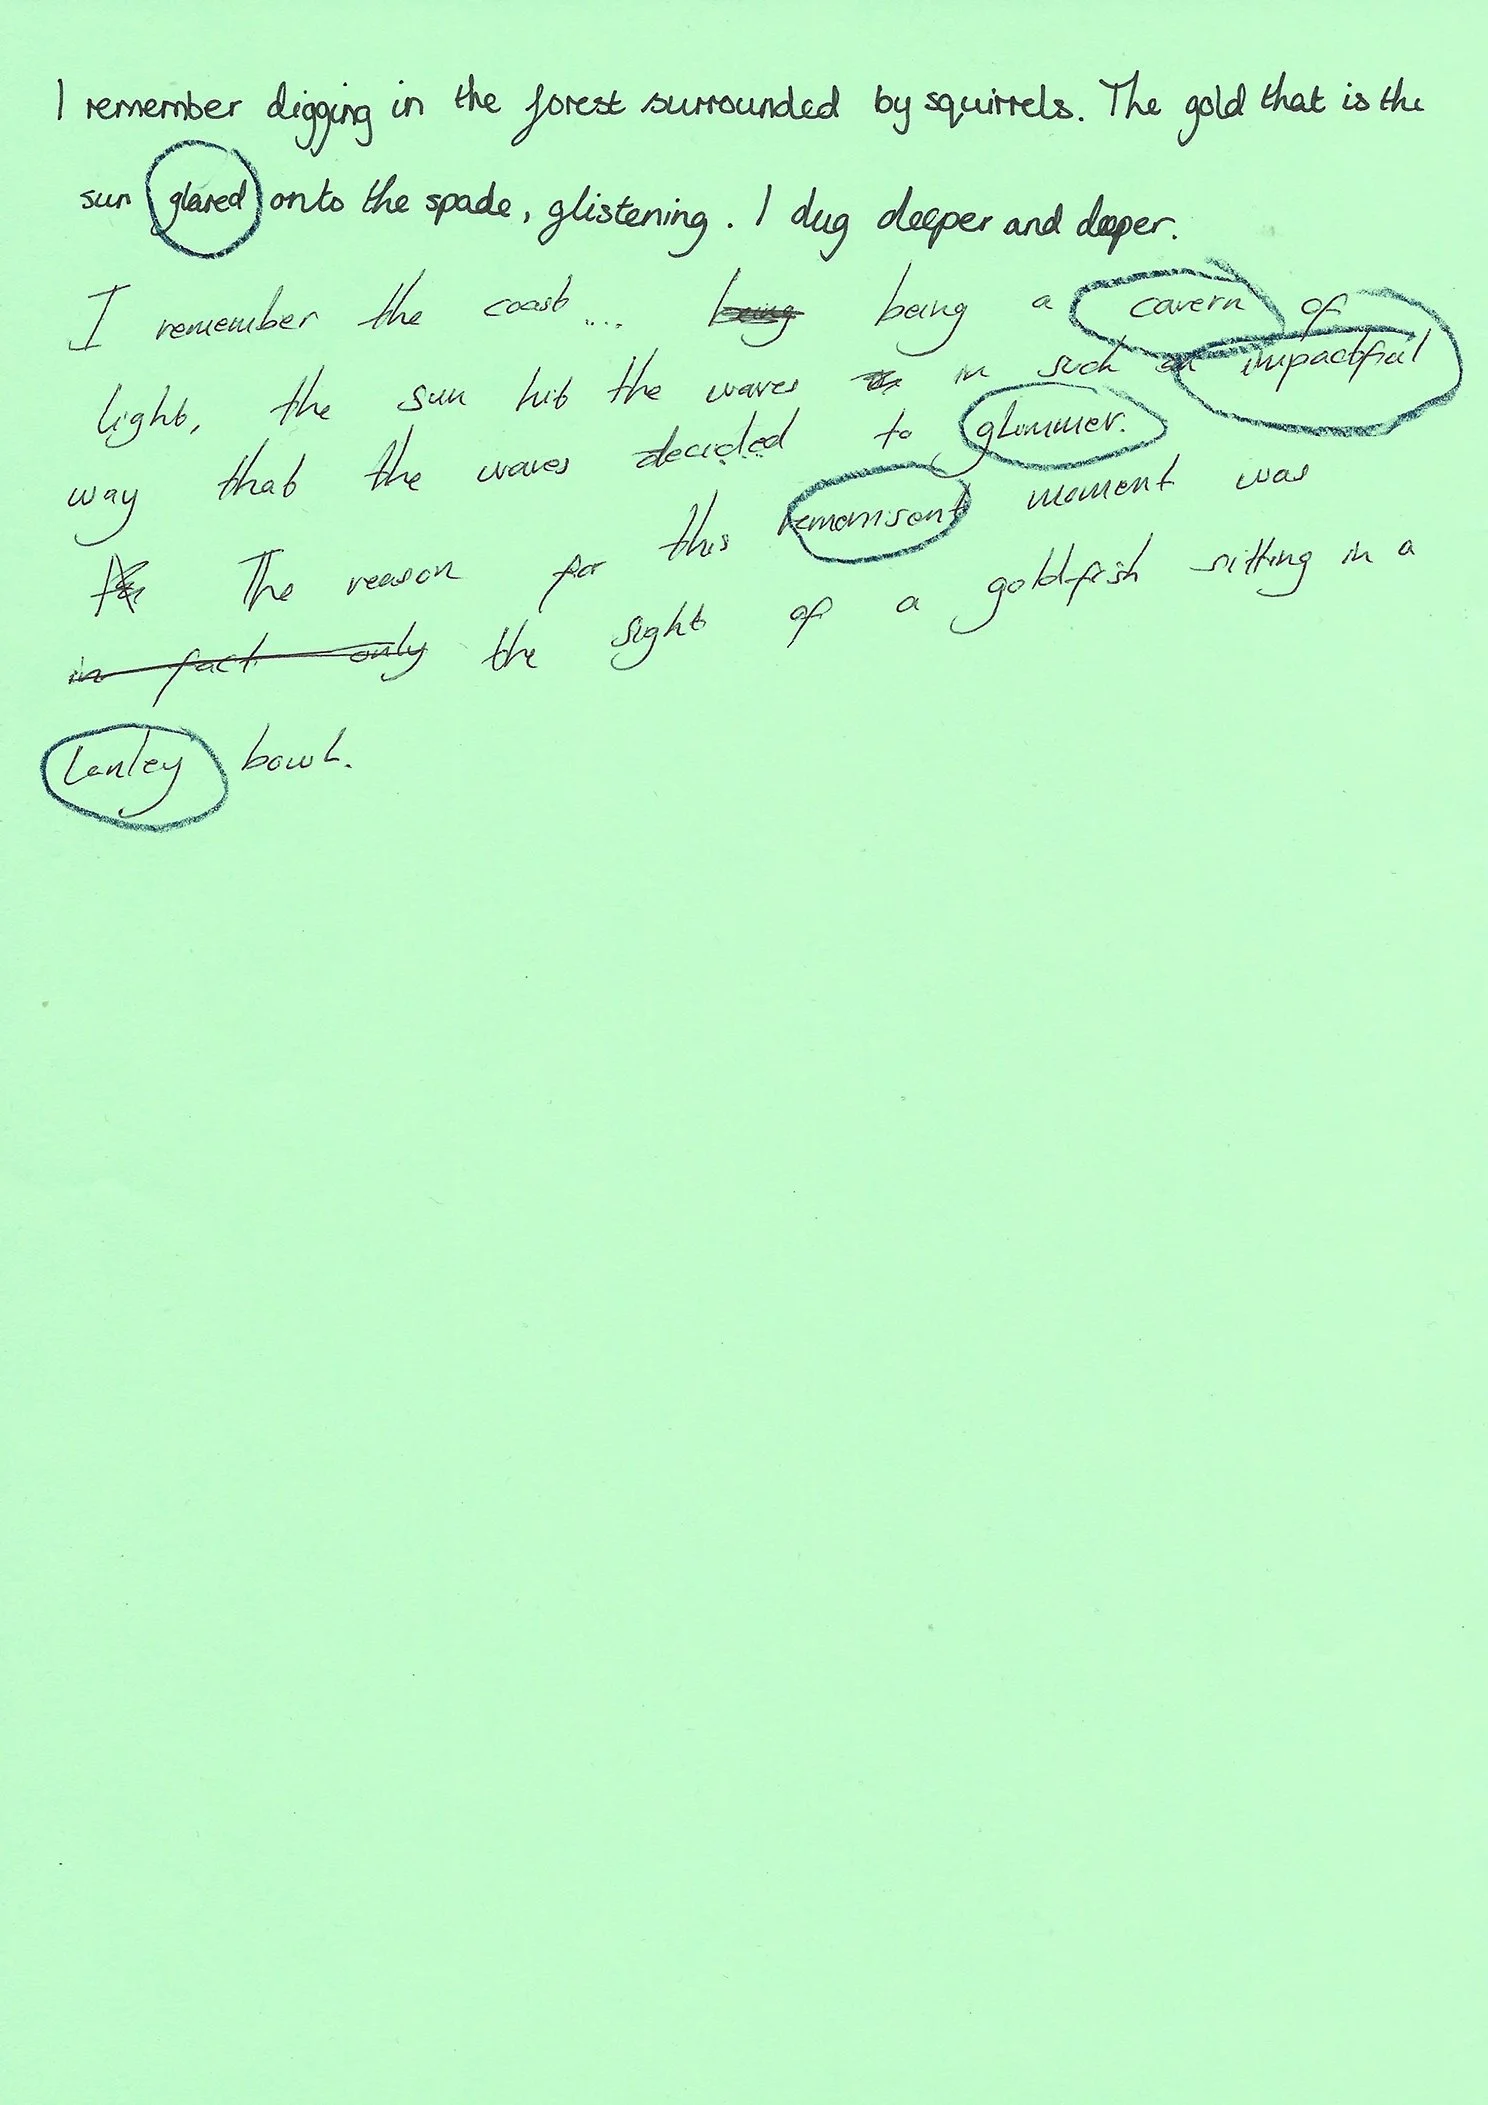 I remember digging in the forest surrounded by squirrels. The gold that is the
sun glared onto the spade, glistening. I dug deeper and deeper.
I remember the coast .... being being a cavern of
light, the sun hit the waves in such an impactful
way that the waves decided to glimmer.
The reason for this remanisant moment was
in fact only the sight of a goldfish sitting in a
Lonley bowl.